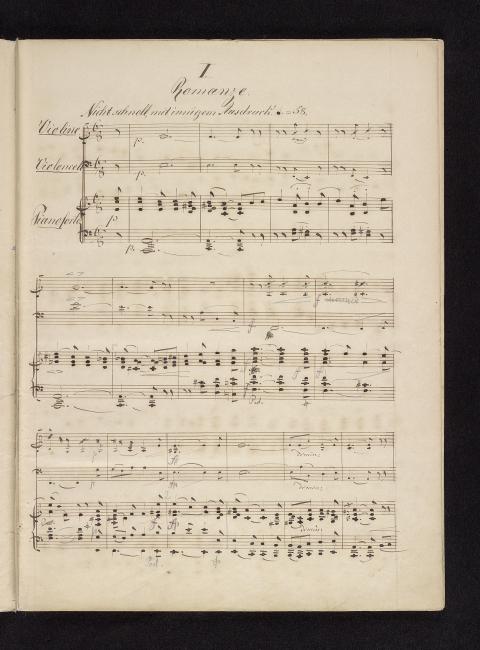 I.
Romanze.
Nicht schnell, mit innigem Ausdruck. ♩. = 58.
Violine
p.
Violoncell
p.
Pianoforte
p
p.
f
f
Ped.
p
p
dimin:
dimin:
dimin:
Ped.